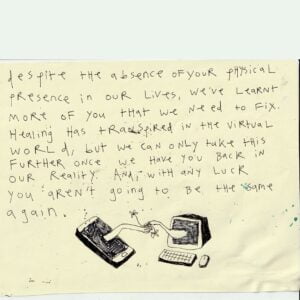 despite the absence of your physical
presence in our lives, we've learnt
more of you that we need to fix.
Healing has transpired in the virtual
world, but we can only take this
further once we have you back in
our reality. And, with any luck
you aren't going to be the same
again.